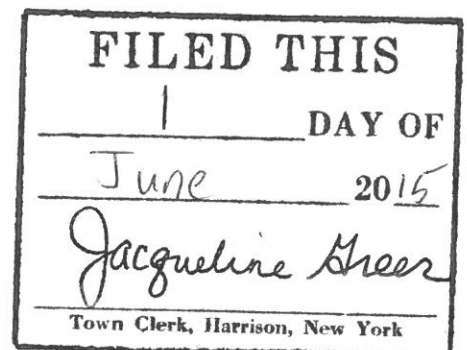 FILED THIS
1 DAY OF
June 2015
Jacqueline Greer
Town Clerk, Harrison, New York